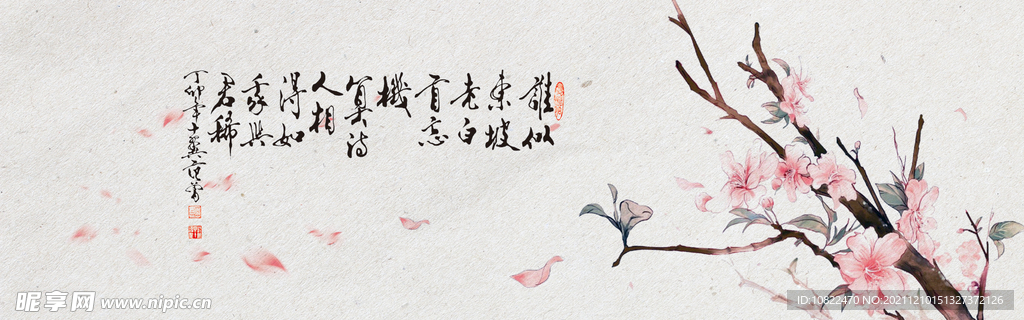 誰似
東坡
老白
首忘
機
算詩
人相
得如
我與
君稀
丁卯年十
昵享网 www.nipic.cn
ID:10822470 NO:20211210151327372126